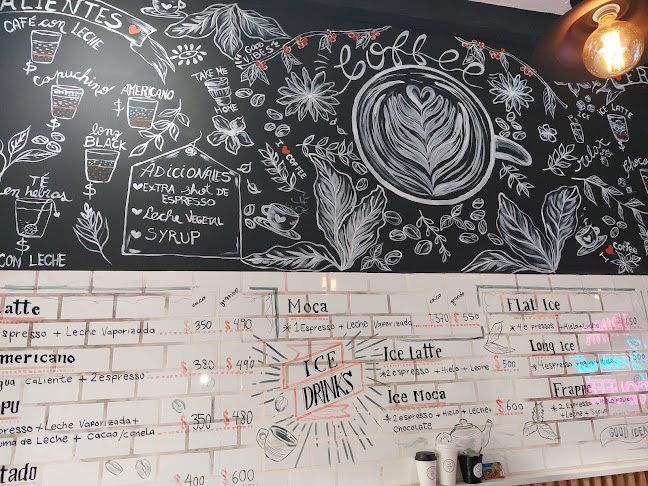 ALIENTES
CAFÉ con LECHE
$
Capuchino
$
AMERICANO
$
long
BLACK
$
TÉ
en hebras
$
CON LECHE
TAKE ME
HOME
GOOD
VIBES
ADICIONALES
EXTRA shot DE
ESPRESSO
Leche VEGETAL
SYRUP
COFFEE
I ❤ COFFEE
ICE LATTE
I ❤ Coffee
atte
chico
grande
spresso + Leche Vaporizada $ 350 $ 490
mericano
gua caliente + 2 espresso $ 380 $ 490
PU
presso + Leche Vaporizada +
uma de Leche + Cacao/canela $ 350 $ 480
tado
$ 400 $ 600
Moca
chico
grande
* 1 Espresso + Leche Vaporizada $ 370 $ 550
ICE
DRINKS
Ice latte
* 2 espresso + Hielo + Leche $ 500
Ice Moca
* 2 espresso + Hielo + Leche +
Chocolate $ 600
Flat Ice
Long Ice
$ 500
Frappe
* 2 Espresso
+ Leche + Syrup
GOOD IDEA